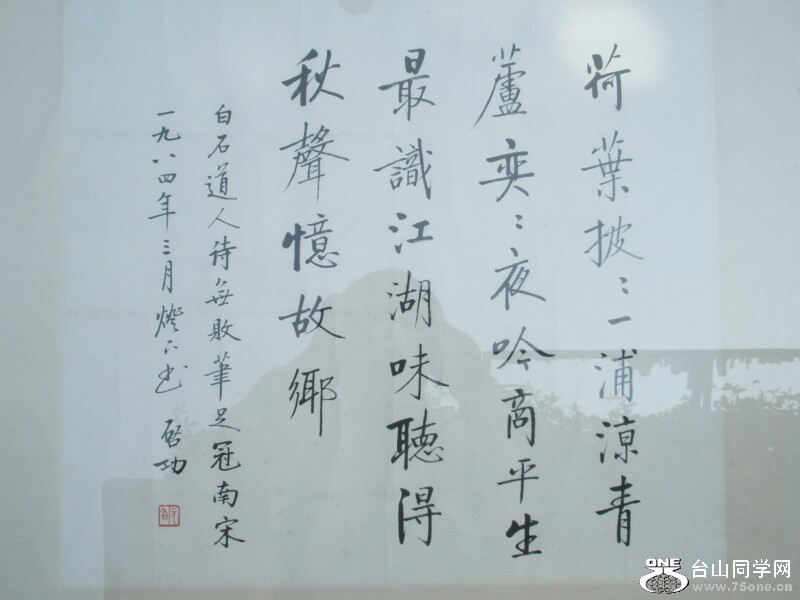 荷葉披〻一浦涼青
蘆奕〻夜吟商平生
最識江湖味聽得
秋聲憶故鄉
白石道人待無敗筆足冠南宋
一九八四年三月燈下書 啓功
ONE
75
台山同学网
www.75one.cn